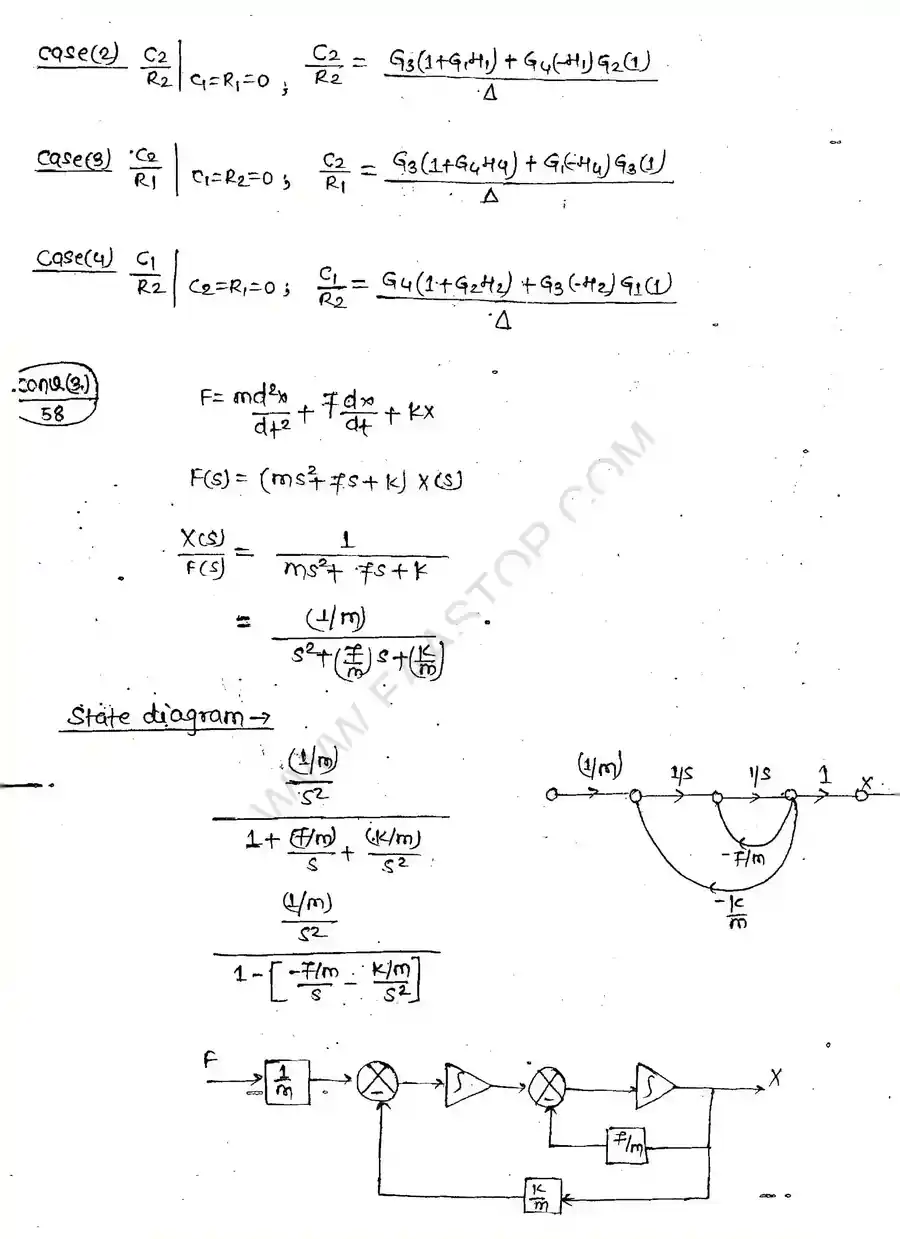 Case(2) C2/R2 | C1=R1=0 ; C2/R2 = G3(1+G1H1) + G4(-H1)G2(1) / Δ
Case(3) C2/R1 | C1=R2=0 ; C2/R1 = G3(1+G4H4) + G1(-H4)G3(1) / Δ
Case(4) C1/R2 | C2=R1=0 ; C1/R2 = G4(1+G2H2) + G3(-H2)G1(1) / Δ
conv(3.)/58
F = md²x/dt² + f dx/dt + kx
F(s) = (ms²+fs+k) X(s)
X(s)/F(s) = 1/(ms²+fs+k)
= (1/m)/(s²+(f/m)s+(k/m))
State diagram →
((1/m)/s²)/(1 + (f/m)/s + (k/m)/s²)
(1/m) 1/s 1/s 1 X
-f/m
-k/m
((1/m)/s²)/(1-[(-f/m)/s - (k/m)/s²])
F 1/m - ∫ - ∫ X
f/m
k/m
WWW.EXASTOP.COM